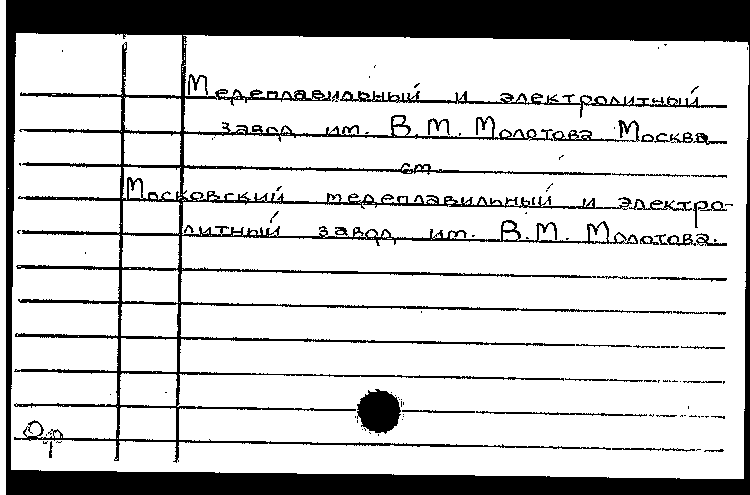 Медеплавильный и электролитный
завод им. В.М. Молотова Москва
см
Московский медеплавильный и электро-
литный завод им. В.М. Молотова.
Ор